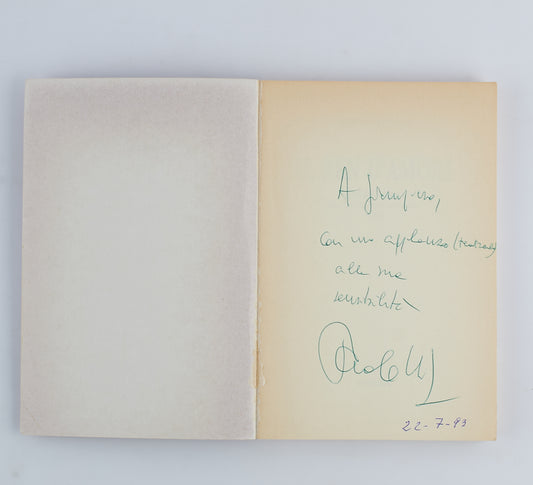 A
con un applauso (teatrale)
alla sua
sensibilità
22-7-93